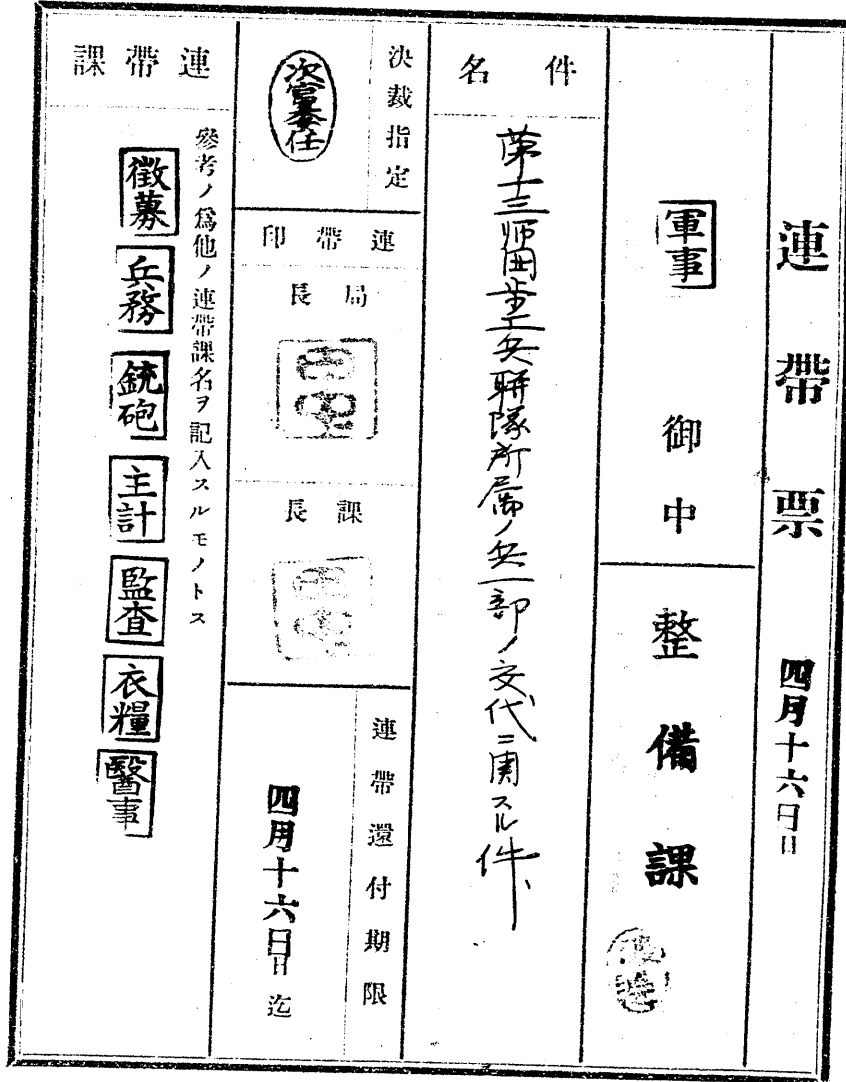 連帶票 四月十六日
軍事 御中
整備課
件名
第十三師団歩工兵聯隊所属ノ兵一部ノ交代ニ関スル件
決裁指定
次官委任
連帶印
局長
課長
連帶還付期限
四月十六日迄
連帶課
參考ノ爲他ノ連帶課名ヲ記入スルモノトス
徵募
兵務
銃砲
主計
監査
衣糧
醫事